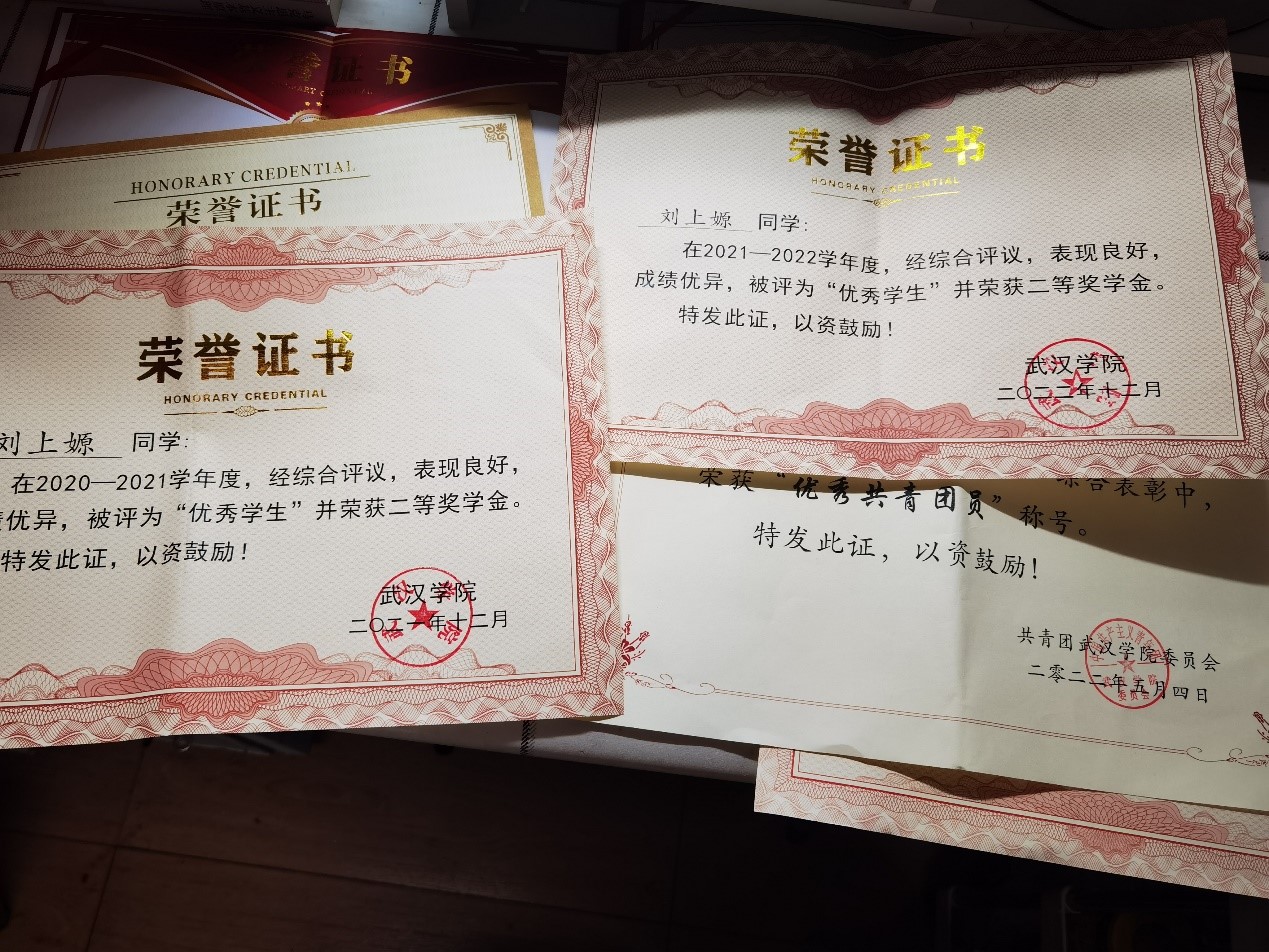 荣誉证书
HONORARY CREDENTIAL
荣誉证书
荣誉证书
HONORARY CREDENTIAL
刘上嫄 同学:
在2021—2022学年度，经综合评议，表现良好，
成绩优异，被评为“优秀学生”并荣获二等奖学金。
特发此证，以资鼓励！
武汉学院
二〇二二年十二月
荣誉证书
HONORARY CREDENTIAL
刘上嫄 同学:
在2020—2021学年度，经综合评议，表现良好，
绩优异，被评为“优秀学生”并荣获二等奖学金。
特发此证，以资鼓励！
武汉学院
二〇二一年十二月
综合表彰中，
荣获“优秀共青团员”称号。
特发此证，以资鼓励！
共青团武汉学院委员会
二零二二年五月四日